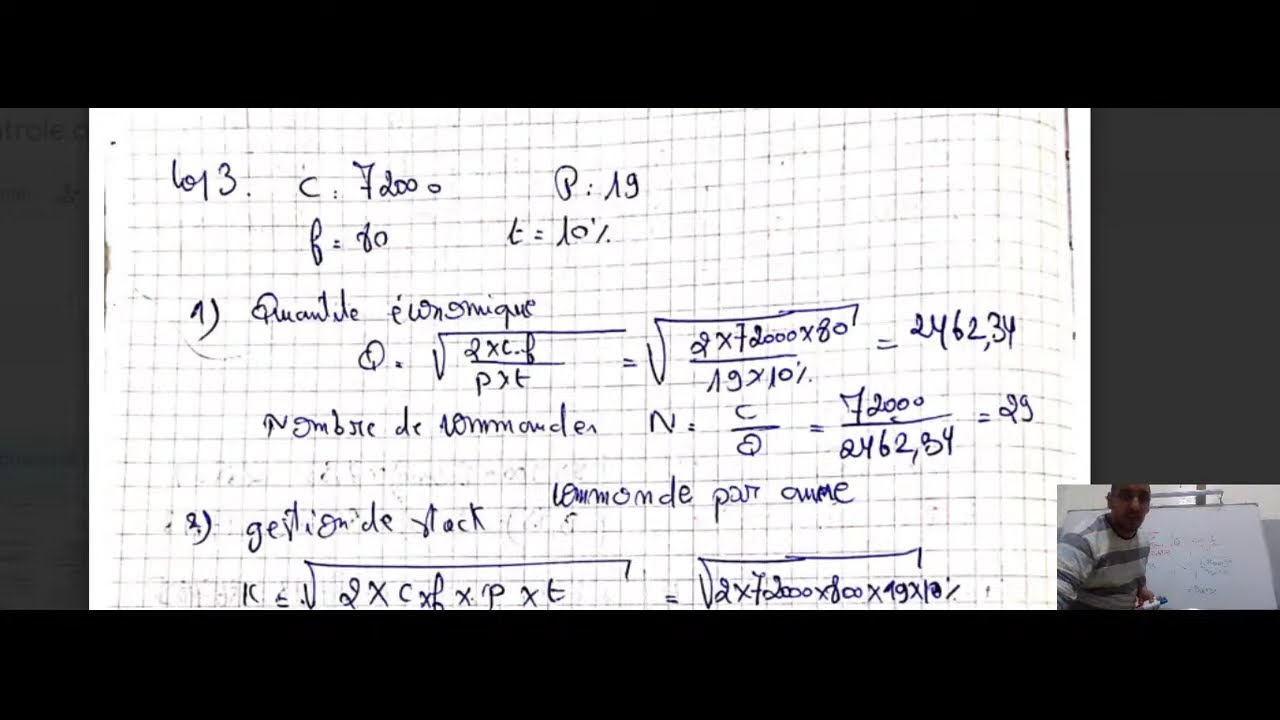 Cas 3. C : 72000 P : 19
f = 80 t = 10%
1) Quantité économique
Q = √(2xC.f / Pxt) = √(2x72000x80 / 19x10%) = 2462,34
Nombre de commandes N = C/Q = 72000/2462,34 = 29
commande par année
2) gestion de stock
K = √(2xCxfxPxt) = √(2x72000x800x19x10%)